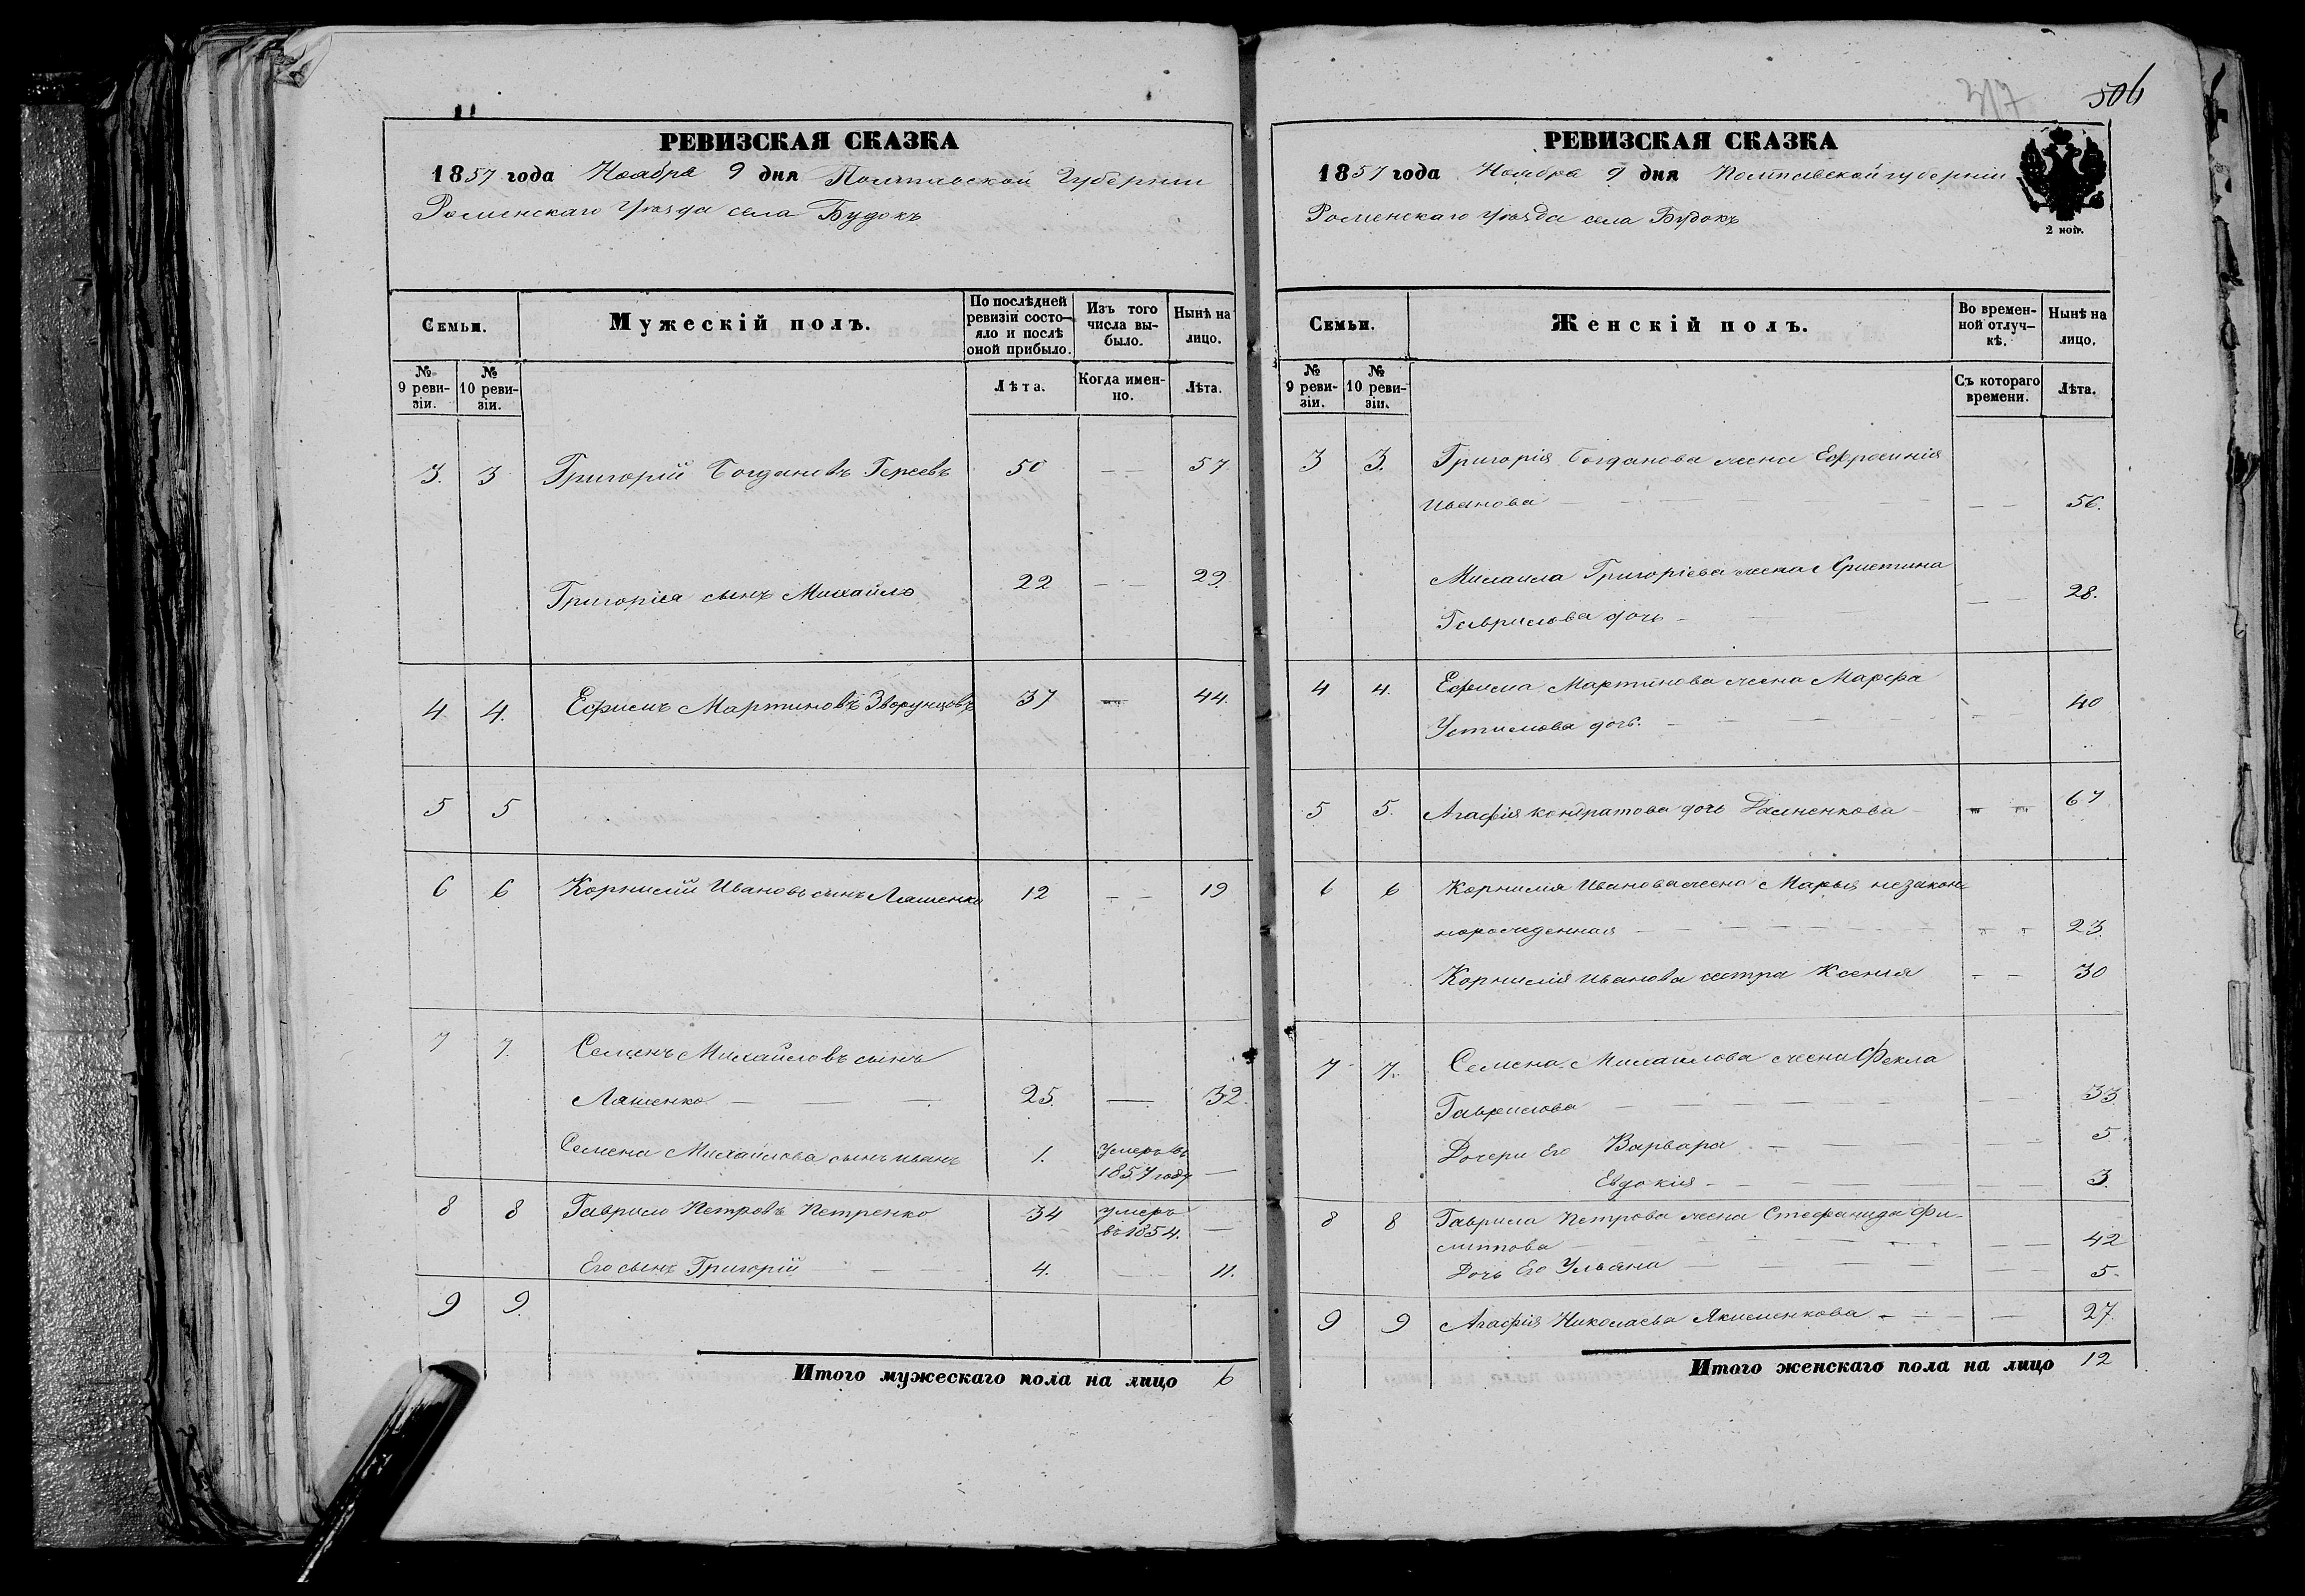 РЕВИЗСКАЯ СКАЗКА
1857 года Ноября 9 дня Полтавской Губернии
Роменскаго Уѣзда села Будокъ
Семьи.
Мужескій полъ.
По послѣдней ревизіи состояло и послѣ оной прибыло.
Изъ того числа выбыло.
Нынѣ на лицо.
№ 9 ревизіи.
№ 10 ревизіи.
Лѣта.
Когда именно.
Лѣта.
3. 3 Григорій Богдановъ 50 — 57
Григорія сынъ Михайло 22 — — 29
4 4. Ефимъ Мартиновъ 37 — 44.
5 5
6 6 Корнилій Ивановъ сынъ Ляшенко 12 — — 19
7 7. Семенъ Михайловъ сынъ
Ляшенко — — — 25 — 32.
Семена Михайлова сынъ Иванъ 1. умеръ въ 1857 году —
8 8 Гаврило Петровъ Петренко 34 умеръ въ 1854. —
Его сынъ Григорій — — 4. — 11.
9 9.
Итого мужескаго пола на лицо 6
317
506
РЕВИЗСКАЯ СКАЗКА
1857 года Ноября 9 дня Полтавской губерніи
Роменскаго Уѣзда села Будокъ
2 коп.
Семьи.
Женскій полъ.
Во временной отлучкѣ.
Нынѣ на лицо.
№ 9 ревизіи.
№ 10 ревизіи.
Съ котораго времени.
Лѣта.
3 3. Григорія Богданова жена Ефросинія
Иванова — — — 56.
Михаила Григоріева жена Христина
Гаврилова дочь — — — 28.
4 4. Ефима Мартинова жена Марфа
Устимова дочь. — — — 40
5 5. Агафія Кондратова дочь — — 67
6 6 Корнилія Иванова жена Марья незаконо
норожденная — — — 23.
Корнилія Иванова сестра Ксенія — — 30
7 7. Семена Михаилова жена Фекла
Гаврилова — — — 33
Дочери Его Варвара — — — 5.
Евдокія — — — 3.
8 8 Гаврила Петрова жена Стефанида Фи-
липпова — — — 42
Дочь Его Ульяна — — — 5.
9 9 Агафія Николаева Якименкова — — 27.
Итого женскаго пола на лицо 12